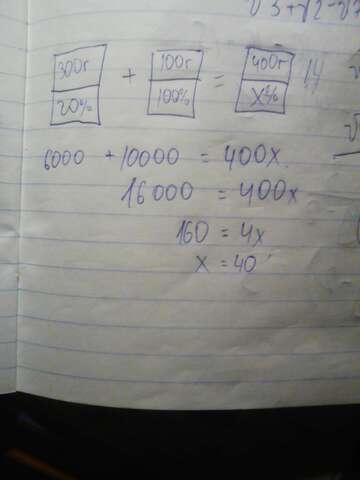 300г + 100г = 400г
20% 100% x%
6000 + 10000 = 400x
16000 = 400x
160 = 4x
x = 40